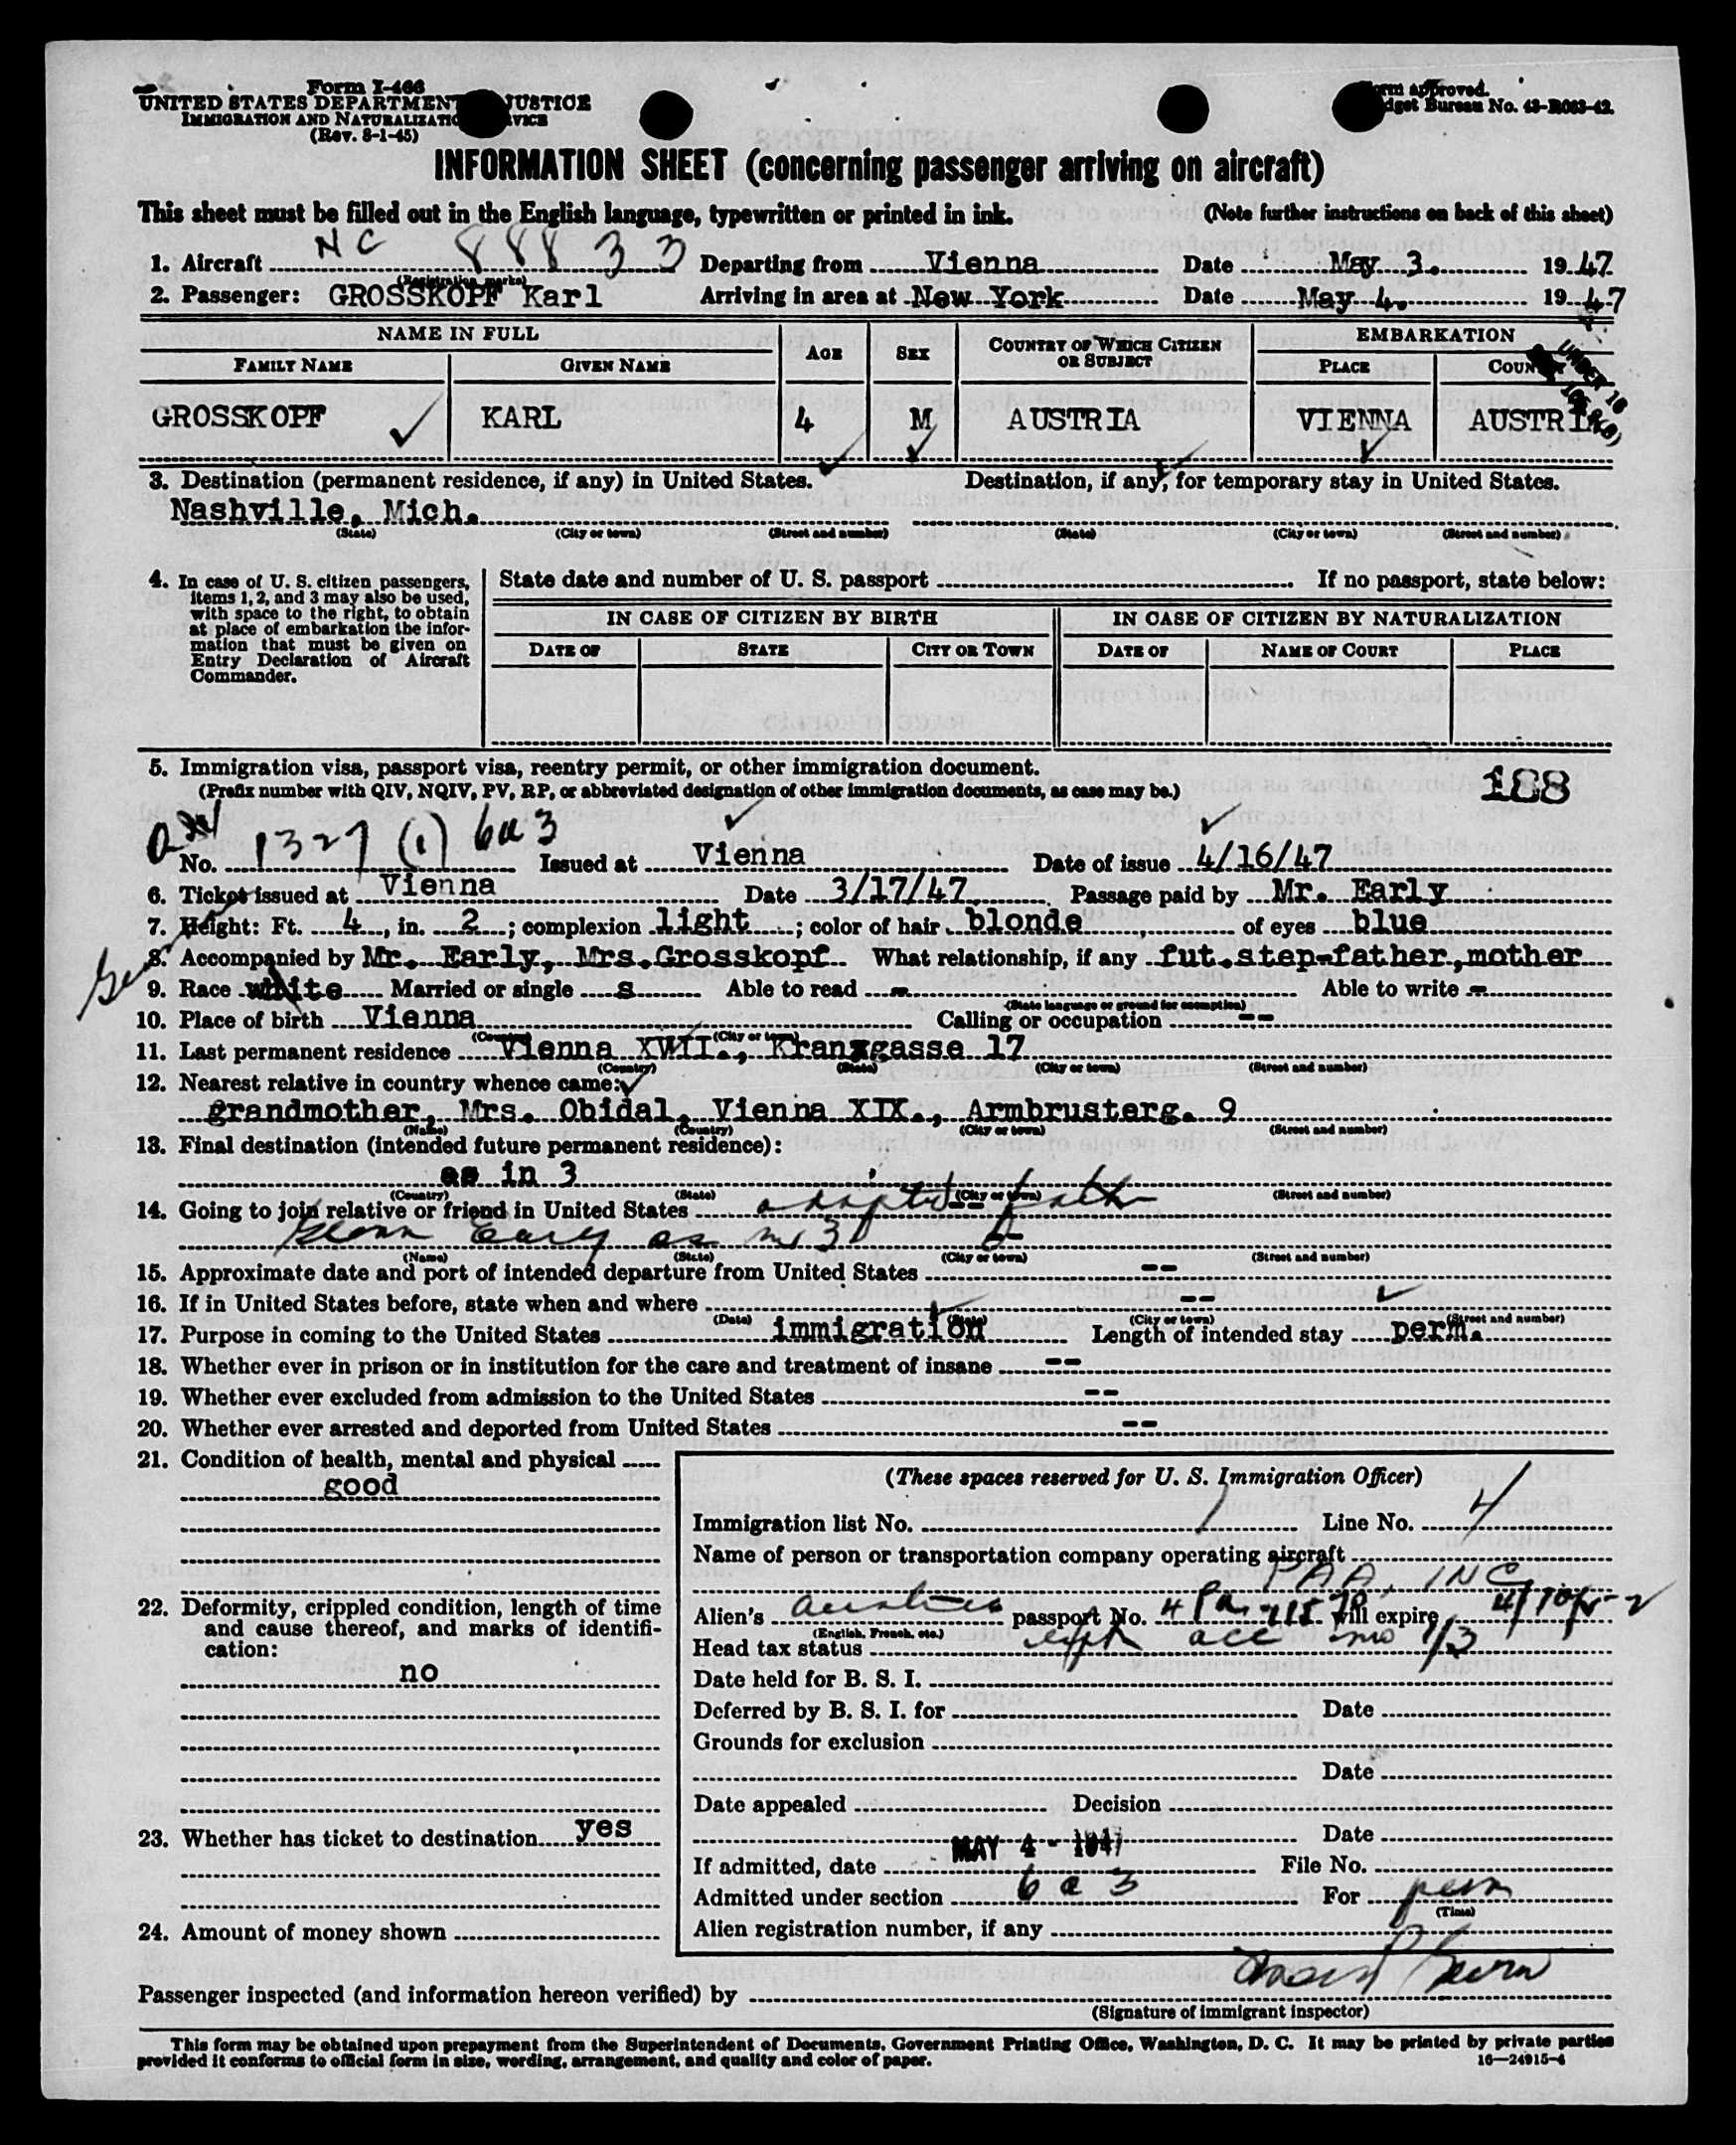 Form I-466
UNITED STATES DEPARTMENT JUSTICE
IMMIGRATION AND NATURALIZATION SERVICE
(Rev. 8-1-45)
Form approved.
Budget Bureau No. 43-R063-42.
INFORMATION SHEET (concerning passenger arriving on aircraft)
This sheet must be filled out in the English language, typewritten or printed in ink. (Note further instructions on back of this sheet)
1. Aircraft NC 88833 Departing from Vienna Date May 3. 1947
(Registration marks)
2. Passenger: GROSSKOPF Karl Arriving in area at New York Date May 4. 1947
NAME IN FULL AGE SEX COUNTRY OF WHICH CITIZEN OR SUBJECT EMBARKATION
FAMILY NAME GIVEN NAME PLACE COUN
UNDER 16
GROSSKOPF KARL 4 M AUSTRIA VIENNA AUSTRIA
3. Destination (permanent residence, if any) in United States. Destination, if any, for temporary stay in United States.
Nashville, Mich.
(State) (City or town) (Street and number) (State) (City or town) (Street and number)
4. In case of U. S. citizen passengers, items 1, 2, and 3 may also be used, with space to the right, to obtain at place of embarkation the information that must be given on Entry Declaration of Aircraft Commander.
State date and number of U. S. passport If no passport, state below:
IN CASE OF CITIZEN BY BIRTH IN CASE OF CITIZEN BY NATURALIZATION
DATE OF STATE CITY OR TOWN DATE OF NAME OF COURT PLACE
5. Immigration visa, passport visa, reentry permit, or other immigration document. 188
(Prefix number with QIV, NQIV, PV, RP, or abbreviated designation of other immigration documents, as case may be.)
No. 1327 (1) 6a3 Issued at Vienna Date of issue 4/16/47
6. Ticket issued at Vienna Date 3/17/47 Passage paid by Mr. Early
7. Height: Ft. 4, in. 2; complexion light; color of hair blonde of eyes blue
8. Accompanied by Mr. Early, Mrs.Grosskopf What relationship, if any fut.step-father,mother
9. Race white Married or single s Able to read - Able to write -
(State language or ground for exemption)
10. Place of birth Vienna Calling or occupation --
(Country) (City or town)
11. Last permanent residence Vienna XVII., Kranzgasse 17
(Country) (State) (City or town) (Street and number)
12. Nearest relative in country whence came:
grandmother, Mrs. Obidal, Vienna XIX., Armbrusterg. 9
(Name) (Country) (City or town) (Street and number)
13. Final destination (intended future permanent residence):
as in 3
(Country) (State) (City or town) (Street and number)
14. Going to join relative or friend in United States adopted father
Glenn Early as no 3
(Name) (State) (City or town) (Street and number)
15. Approximate date and port of intended departure from United States --
16. If in United States before, state when and where --
(Date) (State) (City or town) (Street and number)
17. Purpose in coming to the United States immigration Length of intended stay perm.
18. Whether ever in prison or in institution for the care and treatment of insane --
19. Whether ever excluded from admission to the United States --
20. Whether ever arrested and deported from United States --
21. Condition of health, mental and physical
good
22. Deformity, crippled condition, length of time and cause thereof, and marks of identification:
no
23. Whether has ticket to destination yes
24. Amount of money shown
(These spaces reserved for U. S. Immigration Officer)
Immigration list No. 1 Line No. 4
Name of person or transportation company operating aircraft
PAA, INC
Alien's Austria passport No. will expire
(English, French, etc.)
Head tax status
Date held for B. S. I.
Deferred by B. S. I. for Date
Grounds for exclusion
Date
Date appealed Decision
Date
If admitted, date MAY 4 - 1947 File No.
Admitted under section 6 a 3 For perm
(Time)
Alien registration number, if any
Passenger inspected (and information hereon verified) by
(Signature of immigrant inspector)
This form may be obtained upon prepayment from the Superintendent of Documents, Government Printing Office, Washington, D. C. It may be printed by private parties
provided it conforms to official form in size, wording, arrangement, and quality and color of paper. 16—24915-4